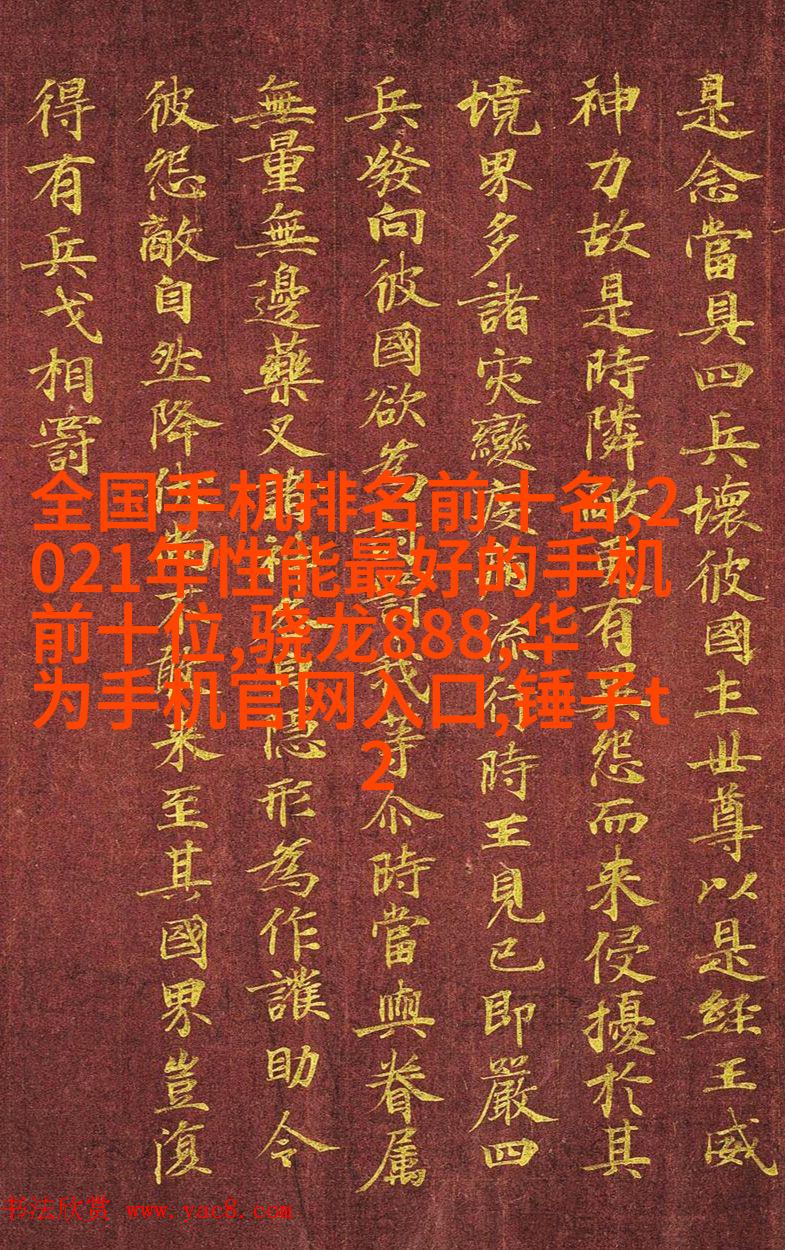 是念當具四兵壞彼國土世尊以是經王威
神力故是時隣敵更有異怨而来侵擾於其
境界多諸灾變疫流行時王見已即嚴四
兵發向彼國欲為討罰我等尒時當與眷属
無量無邊藥叉諸神各自隱形為作護助令
彼怨敵自然降伏尚不敢来至其國界豈復
得有兵戈相罸
全国手机排名前十名,2
021年性能最好的手机
前十位,骁龙888,华
为手机官网入口,锤子t
2
书法欣赏 www.yac8.com